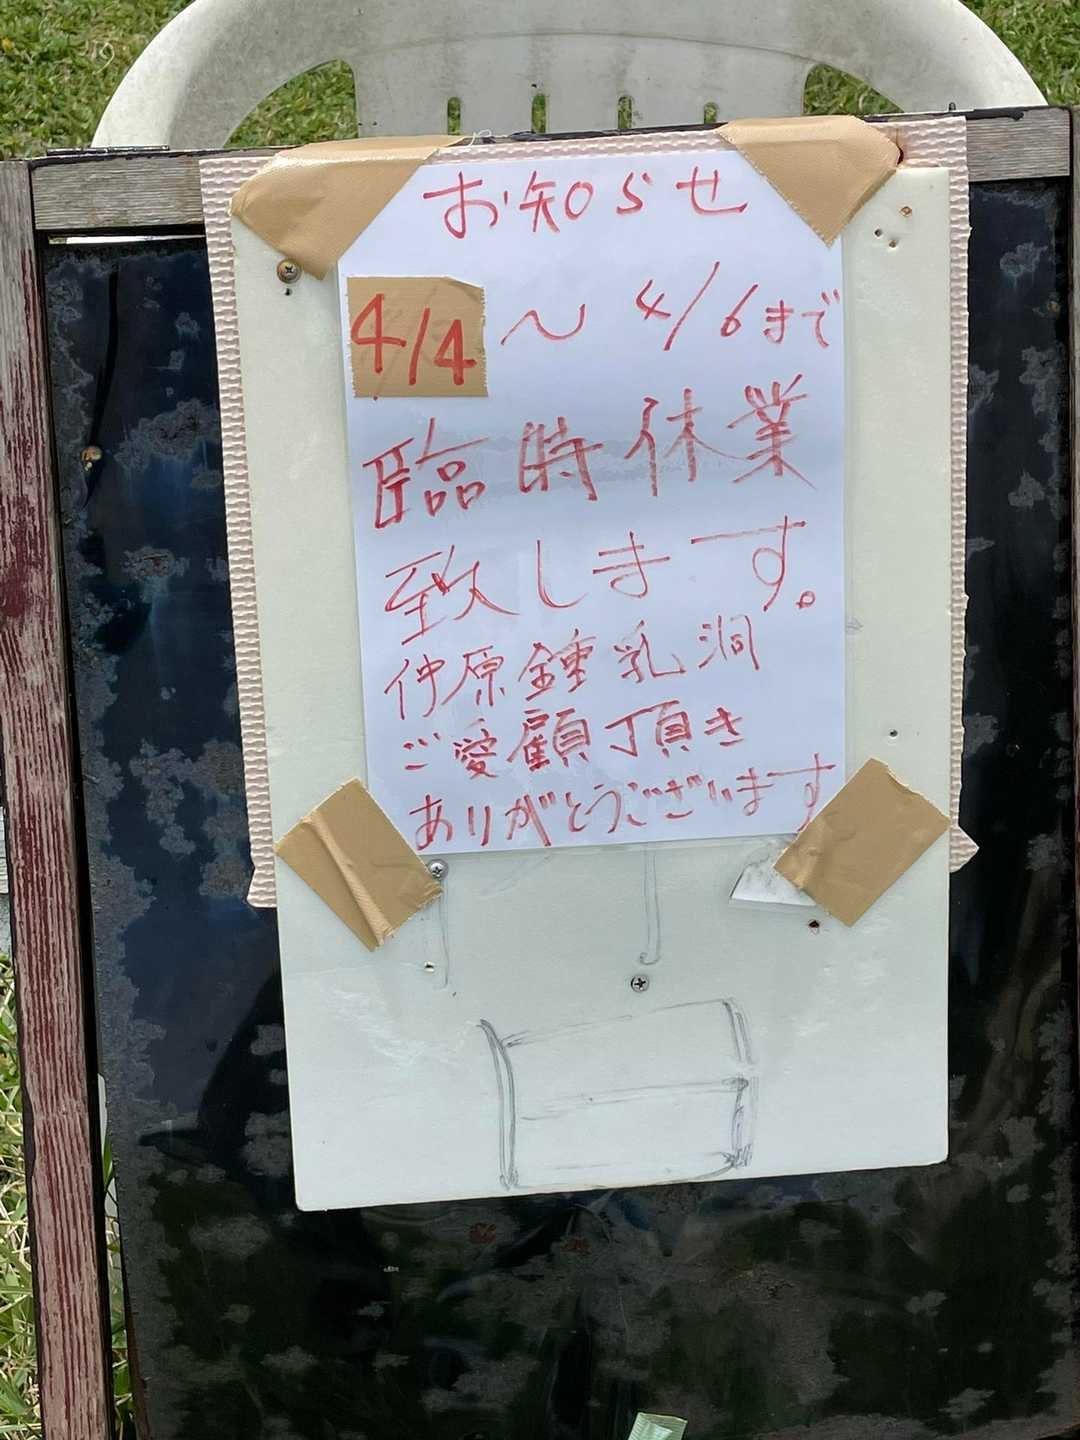 お知らせ
4/4 〜 4/6まで
臨時休業
致します。
仲原鍾乳洞
ご愛顧頂き
ありがとうございます